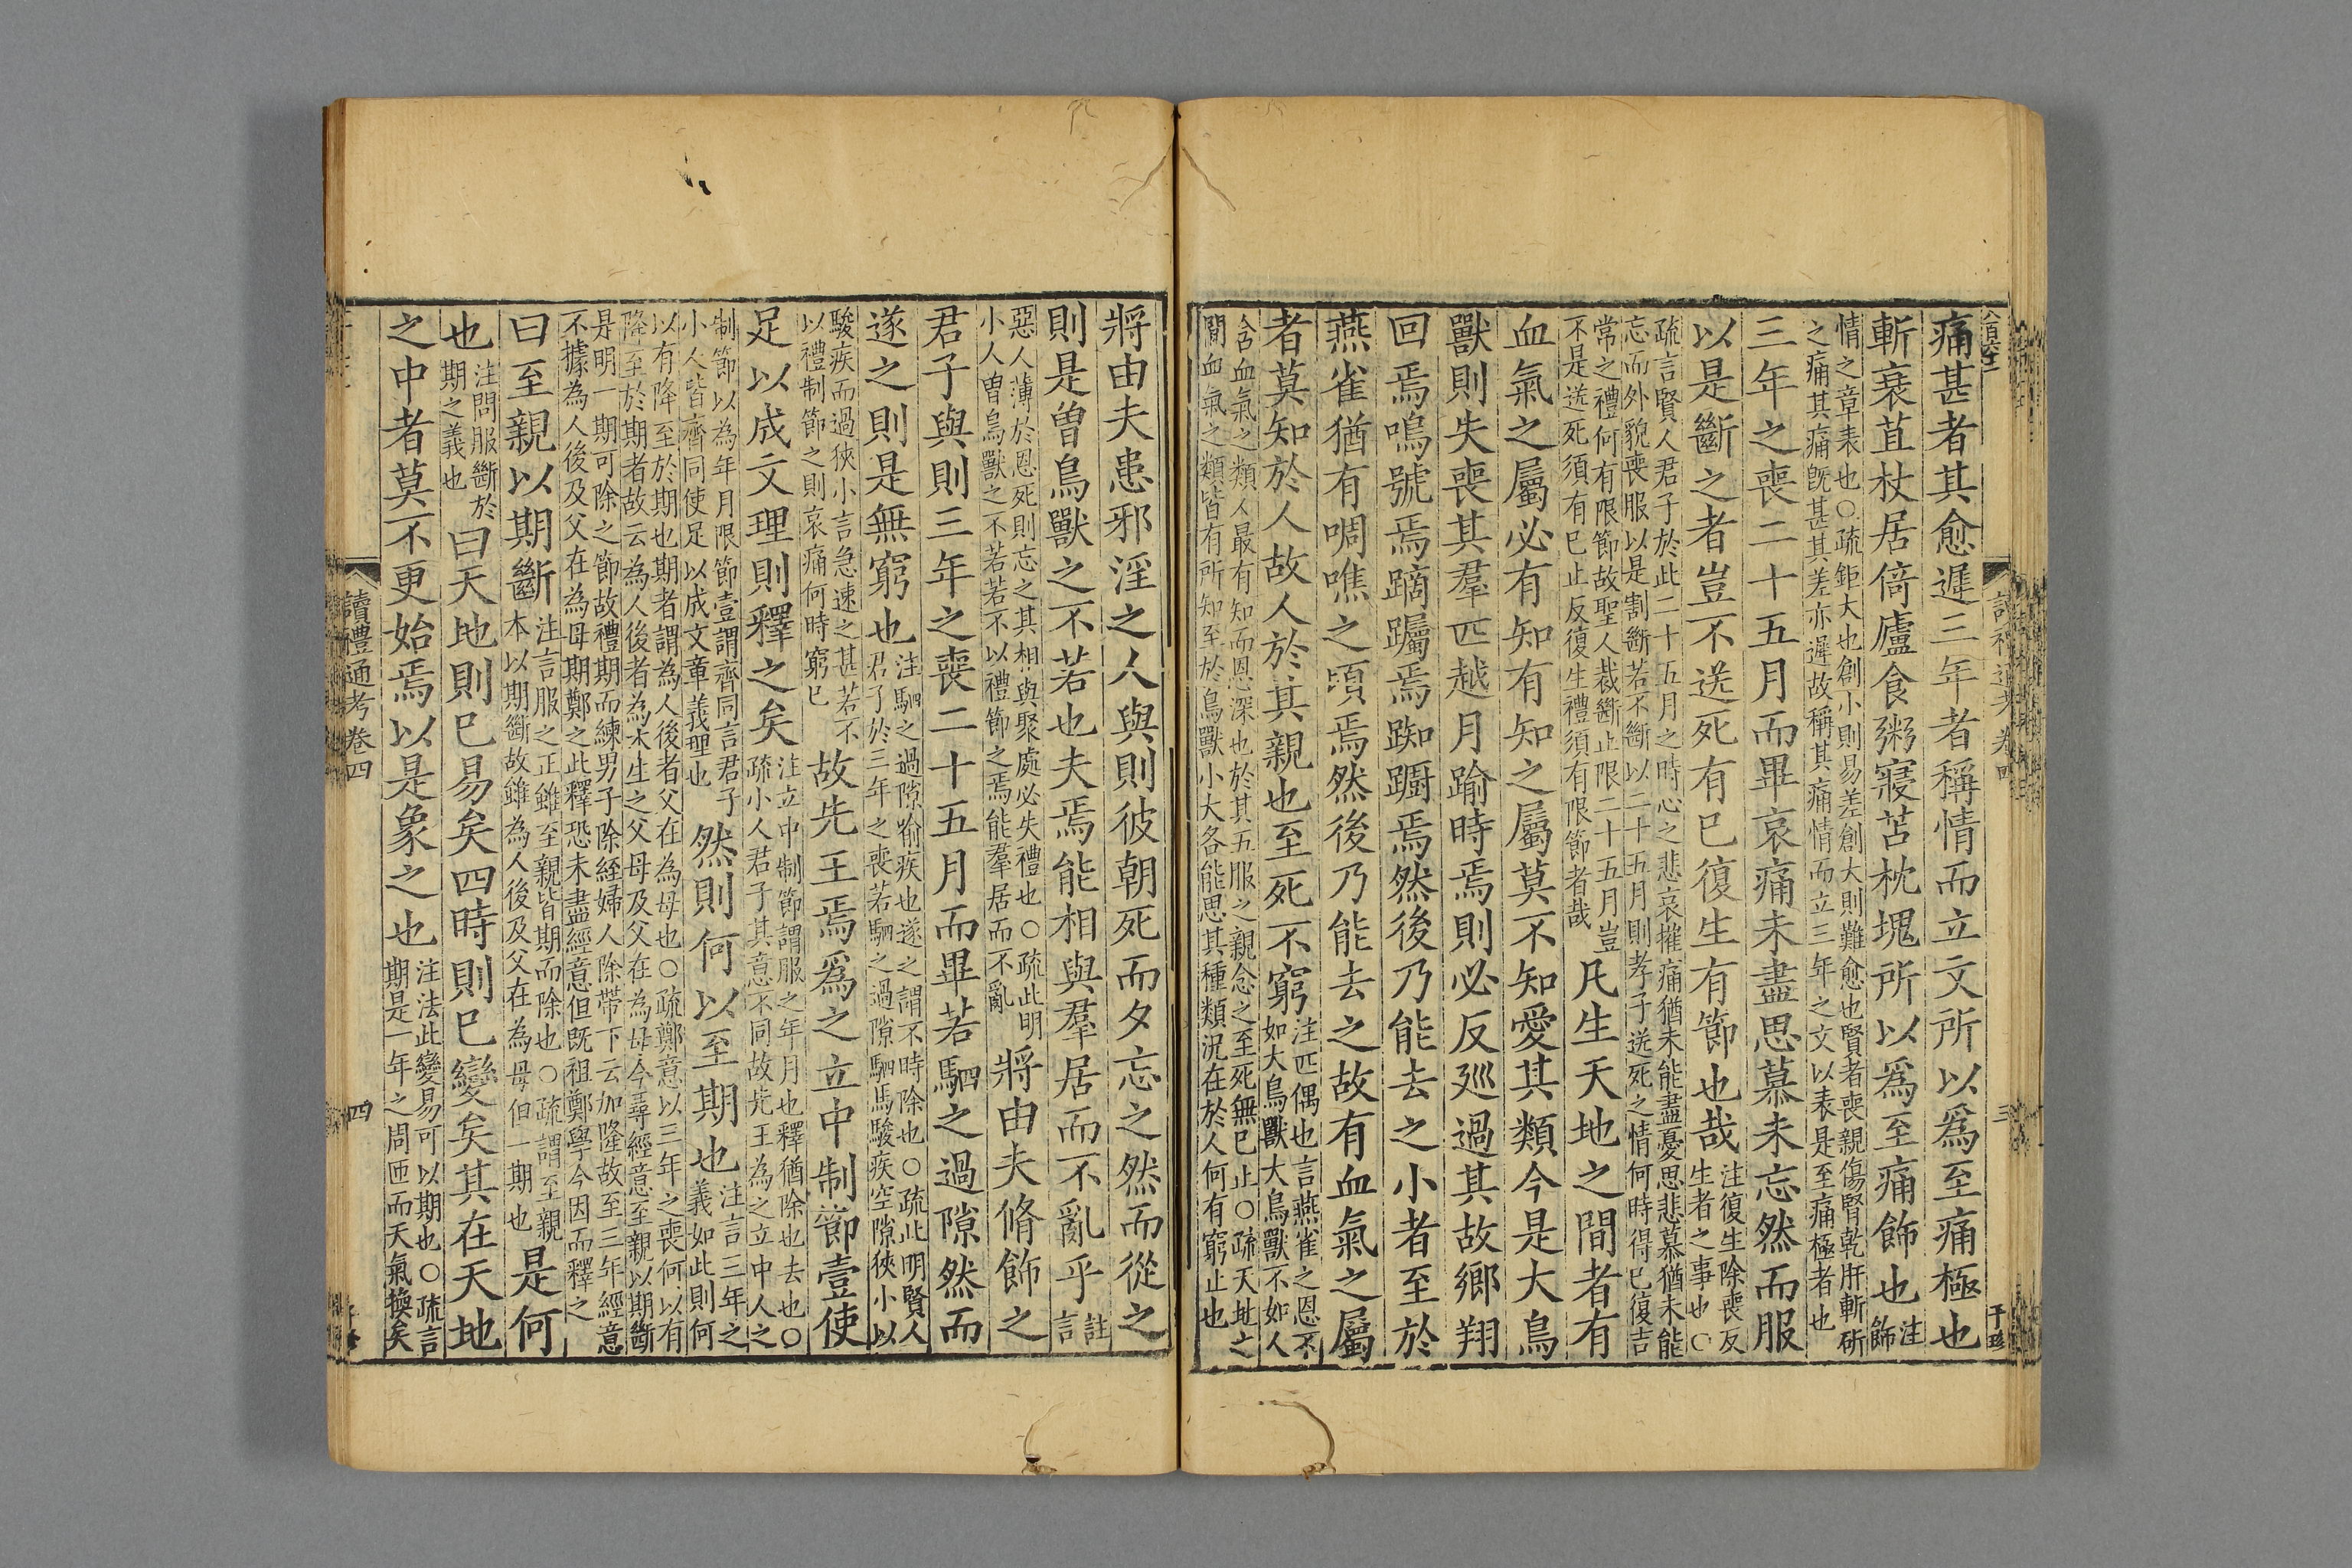 痛甚者其愈遲三年者稱情而立文所以爲至痛極也
斬衰苴杖居倚廬食粥寢苫枕塊所以爲至痛飾也注飾
情之章表也○疏鉅大也創小則易差創大則難愈也賢者喪親傷腎乾肝斬斫
之痛其痛旣甚其差亦遲故稱其痛情而立三年之文以表是至痛極者也
三年之喪二十五月而畢哀痛未盡思慕未忘然而服
以是斷之者豈不送死有已復生有節也哉注復生除喪反生者之事也○
疏言賢人君子於此二十五月之時心之悲哀摧痛猶未能盡憂思悲慕猶未能
忘而外貌喪服以是割斷若不斷以二十五月則孝子送死之情何時得已復吉
常之禮何有限節故聖人裁斷止限二十五月豈
不是送死須有已止反復生禮須有限節者哉
凡生天地之間者有
血氣之屬必有知有知之屬莫不知愛其類今是大鳥
獸則失喪其羣匹越月踰時焉則必反廵過其故鄉翔
回焉鳴號焉蹢躅焉踟躕焉然後乃能去之小者至於
燕雀猶有啁噍之頃焉然後乃能去之故有血氣之屬
者莫知於人故人於其親也至死不窮注匹偶也言燕雀之恩不如大鳥獸大鳥獸不如人
含血氣之類人最有知而恩深也於其五服之親念之至死無已止○疏天地之
間血氣之類皆有所知至於鳥獸小大各能思其種類況在於人何有窮止也
三
于珍
將由夫患邪淫之人與則彼朝死而夕忘之然而從之
則是曾鳥獸之不若也夫焉能相與羣居而不亂乎註言
惡人薄於恩死則忘之其相與聚處必失禮也○疏此明
小人曾鳥獸之不若若不以禮節之焉能羣居而不亂
將由夫脩飾之
君子與則三年之喪二十五月而畢若駟之過隙然而
遂之則是無窮也注駟之過隙喻疾也遂之謂不時除也○疏此明賢人君子於三年之喪若駟之過隙駟馬駿疾空隙狹小以
駿疾而過狹小言急速之甚若不
以禮制節之則哀痛何時窮已
故先王焉爲之立中制節壹使
足以成文理則釋之矣注立中制節謂服之年月也釋猶除也去也○疏小人君子其意不同故先王為之立中人之
制節以為年月限節壹謂齊同言君子
小人皆齊同使足以成文章義理也
然則何以至期也注言三年之義如此則何
以有降至於期也期者謂為人後者父在為母也○疏鄭意以三年之喪何以有
降至於期者故云為人後者為本生之父母及父在為母今尋經意至親以期斷
是明一期可除之節故禮期而練男子除絰婦人除帶下云加隆故至三年經意
不據為人後及父在為母期鄭之此釋恐未盡經意但既祖鄭學今因而釋之
曰至親以期斷注言服之正雖至親皆期而除也○疏謂至親本以期斷故雖為人後及父在為母但一期也
是何
也注問服斷於期之義也
曰天地則已易矣四時則已變矣其在天地
之中者莫不更始焉以是象之也注法此變易可以期也○疏言期是一年之周匝而天氣換矣
讀禮通考卷四
四